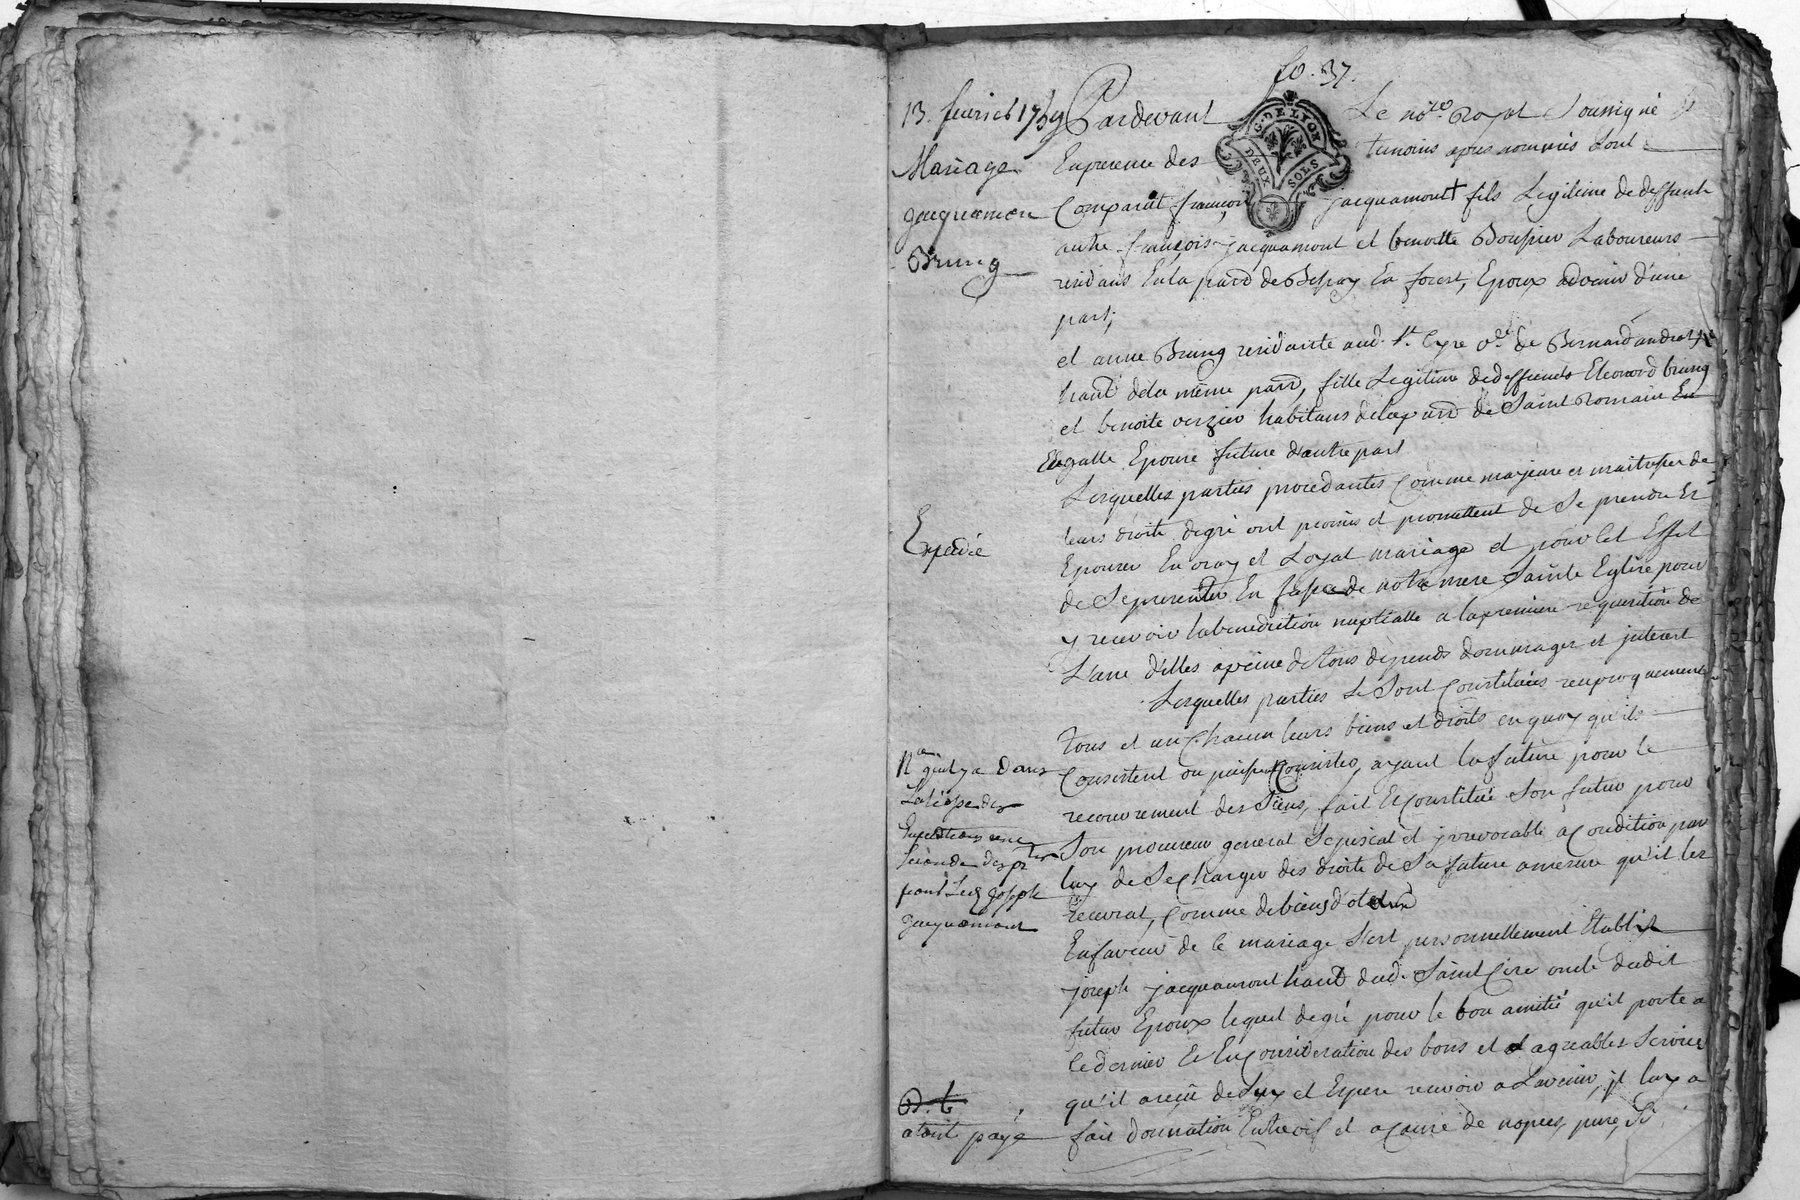 fo. 37.
13. fevrier 1759
Mariage
jacquemon
Bruny
Expedié
Nta quil y a dans
jacquemont
a tout payé
G. DE LYON
DEUX SOLS
Pardevant Le nore Royal Soussigné &
En presence des temoins apres nommés sont
Comparut françois jacquamont fils Legitime de deffunt
autre françois jacquamont et benoitte Boussier Laboureurs
residans En la parr de Bessey En forest, Epoux advenir d'une
part;
et anne Bruny residante aud. St. Cyre vve de Bernard andre
hant de la même parr, fille Legitime de deffunts Eleonord bruny
et benoite verzier habitans de la parr de Saint Romain En
Galle Epouse future d'autre part
Lesquelles parties procedantes Comme majeure et maitresses de
leurs droits de gré ont promis et promettent de Se prendre Et
Epouser En vray et Loyal mariage et pour Cet Effet
de Se presenter En face de notre mere Sainte Eglise pour
y recevoir la benediction nuptialle a la premiere requisition de
L'une d'elles a peine de tous depends dommages et interest
Lesquelles parties Se Sont Constituées reciproquement
tous et un Chacun leurs biens et droits en quoy qu'ils
Consistent ou puissent Consister, ayant la future pour le
recouvrement des Siens, fait et Constitué Son futur pour
Son procureur general Special et irrevocable a Condition par
luy de Se Charger des droits de Sa future a mesure qu'il les
recevrat, Comme de biens dotaux
En faveur de Ce mariage S'est personnellement Etablit
joseph jacquamont hant dud. Saint Cire oncle dudit
futur Epoux lequel de gré pour le bon amitié qu'il porte a
Ce dernier et En Consideration des bons et agreables Services
qu'il a reçu de luy et Espere recevoir a L'avenir, il luy a
fait donnation Entre vif et a Cause de nopces, pure, Si